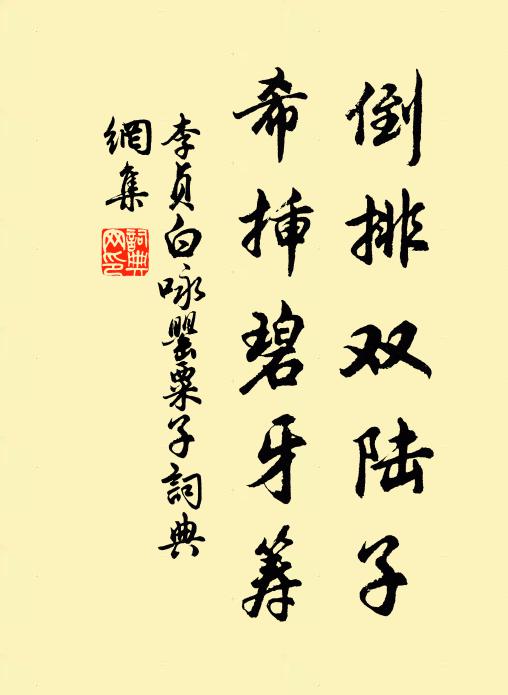 倒排双陆子
希插碧牙筹
李贞白咏罂粟子詞典
網集
詞典
网印